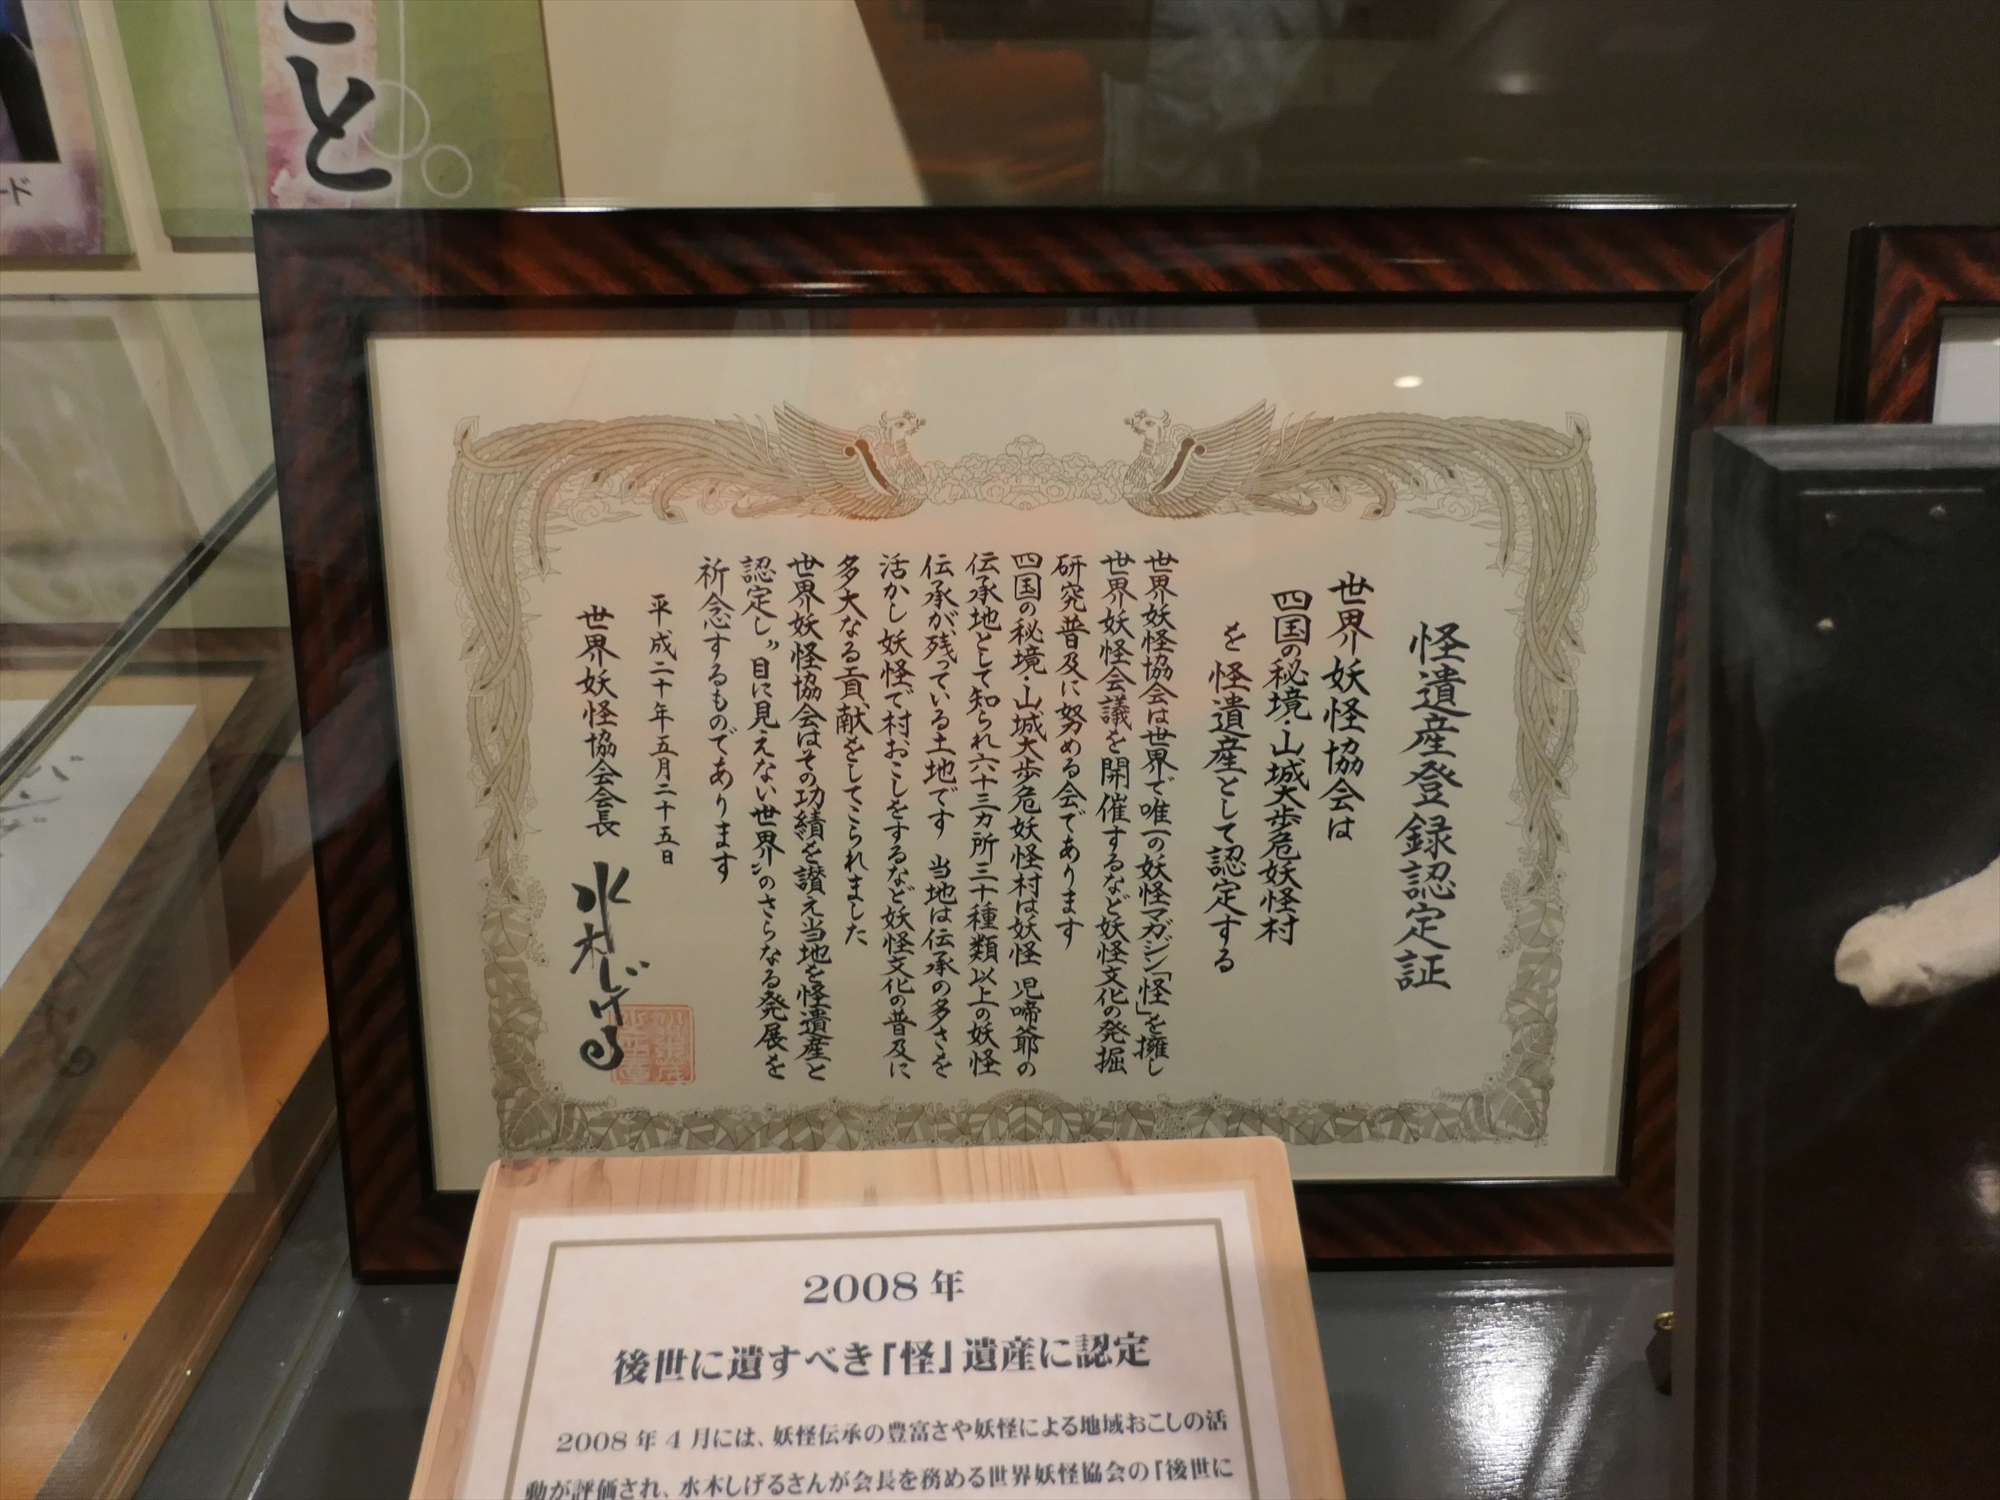 こと
ード
怪遺産登録認定証
世界妖怪協会は
四国の秘境・山城大歩危妖怪村
を怪遺産として認定する
世界妖怪協会は世界で唯一の妖怪マガジン「怪」を擁し
世界妖怪会議を開催するなど妖怪文化の発掘
研究普及に努める会であります
四国の秘境・山城大歩危妖怪村は妖怪 児啼爺の
伝承地として知られ六十三カ所三十種類以上の妖怪
伝承が残っている土地です 当地は伝承の多さを
活かし妖怪で村おこしをするなど妖怪文化の普及に
多大なる貢献をしてこられました
世界妖怪協会はその功績を讃え当地を怪遺産と
認定し〝目に見えない世界〟のさらなる発展を
祈念するものであります
平成二十年五月二十五日
世界妖怪協会会長 水木しげる
2008年
後世に遺すべき「怪」遺産に認定
2008年4月には、妖怪伝承の豊富さや妖怪による地域おこしの活
動が評価され、水木しげるさんが会長を務める世界妖怪協会の「後世に